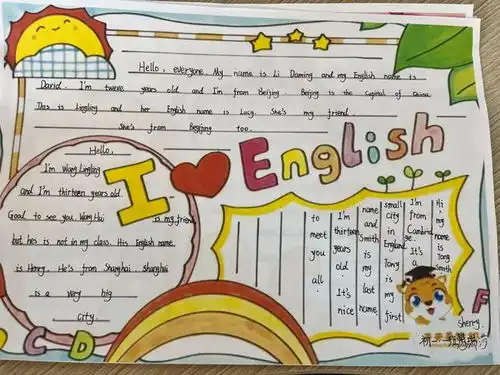 Hello, everyone. My name is Li Daming and my English name is
David. I'm twelve years old and I'm from Beijing. Beijing is the capital of China.
This is Lingling and her English name is Lucy. She's my friend.
She's from Beijing too.
I ❤ English
Hello,
I'm Wang Lingling
and I'm thirteen years old.
Good to see you. Wang Hui is my friend
but he's is not in my class. His English name
is Henry. He's from Shanghai. Shanghai
is a very big
city.
Hi, my name is Tony Smith
I'm from Cambridge. It's a
small city in England. Tony
name and Smith is my first
I'm thirteen years old. It's nice
to meet you all.
C D
F
Sherry.